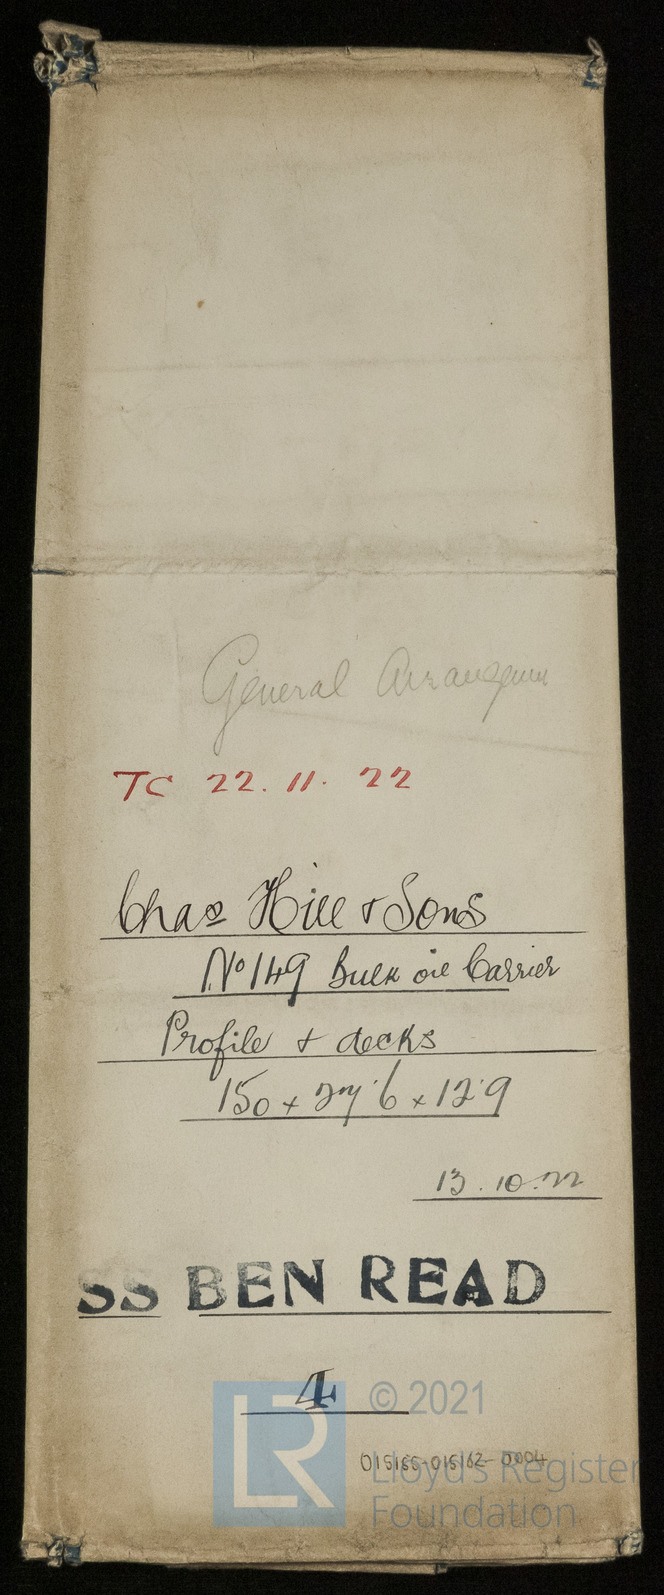 General Arrangem
TC 22.11.22
Chas Hill & Sons
No 149 Bulk oil Carrier
Profile & decks
150 x 27'6 x 12'9
13.10.22
SS BEN READ
4
LR
© 2021
015155-015162-0004
Lloyd's Register
Foundation